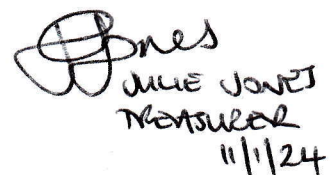 Jones
JULIE JONES
TREASURER
11/1/24